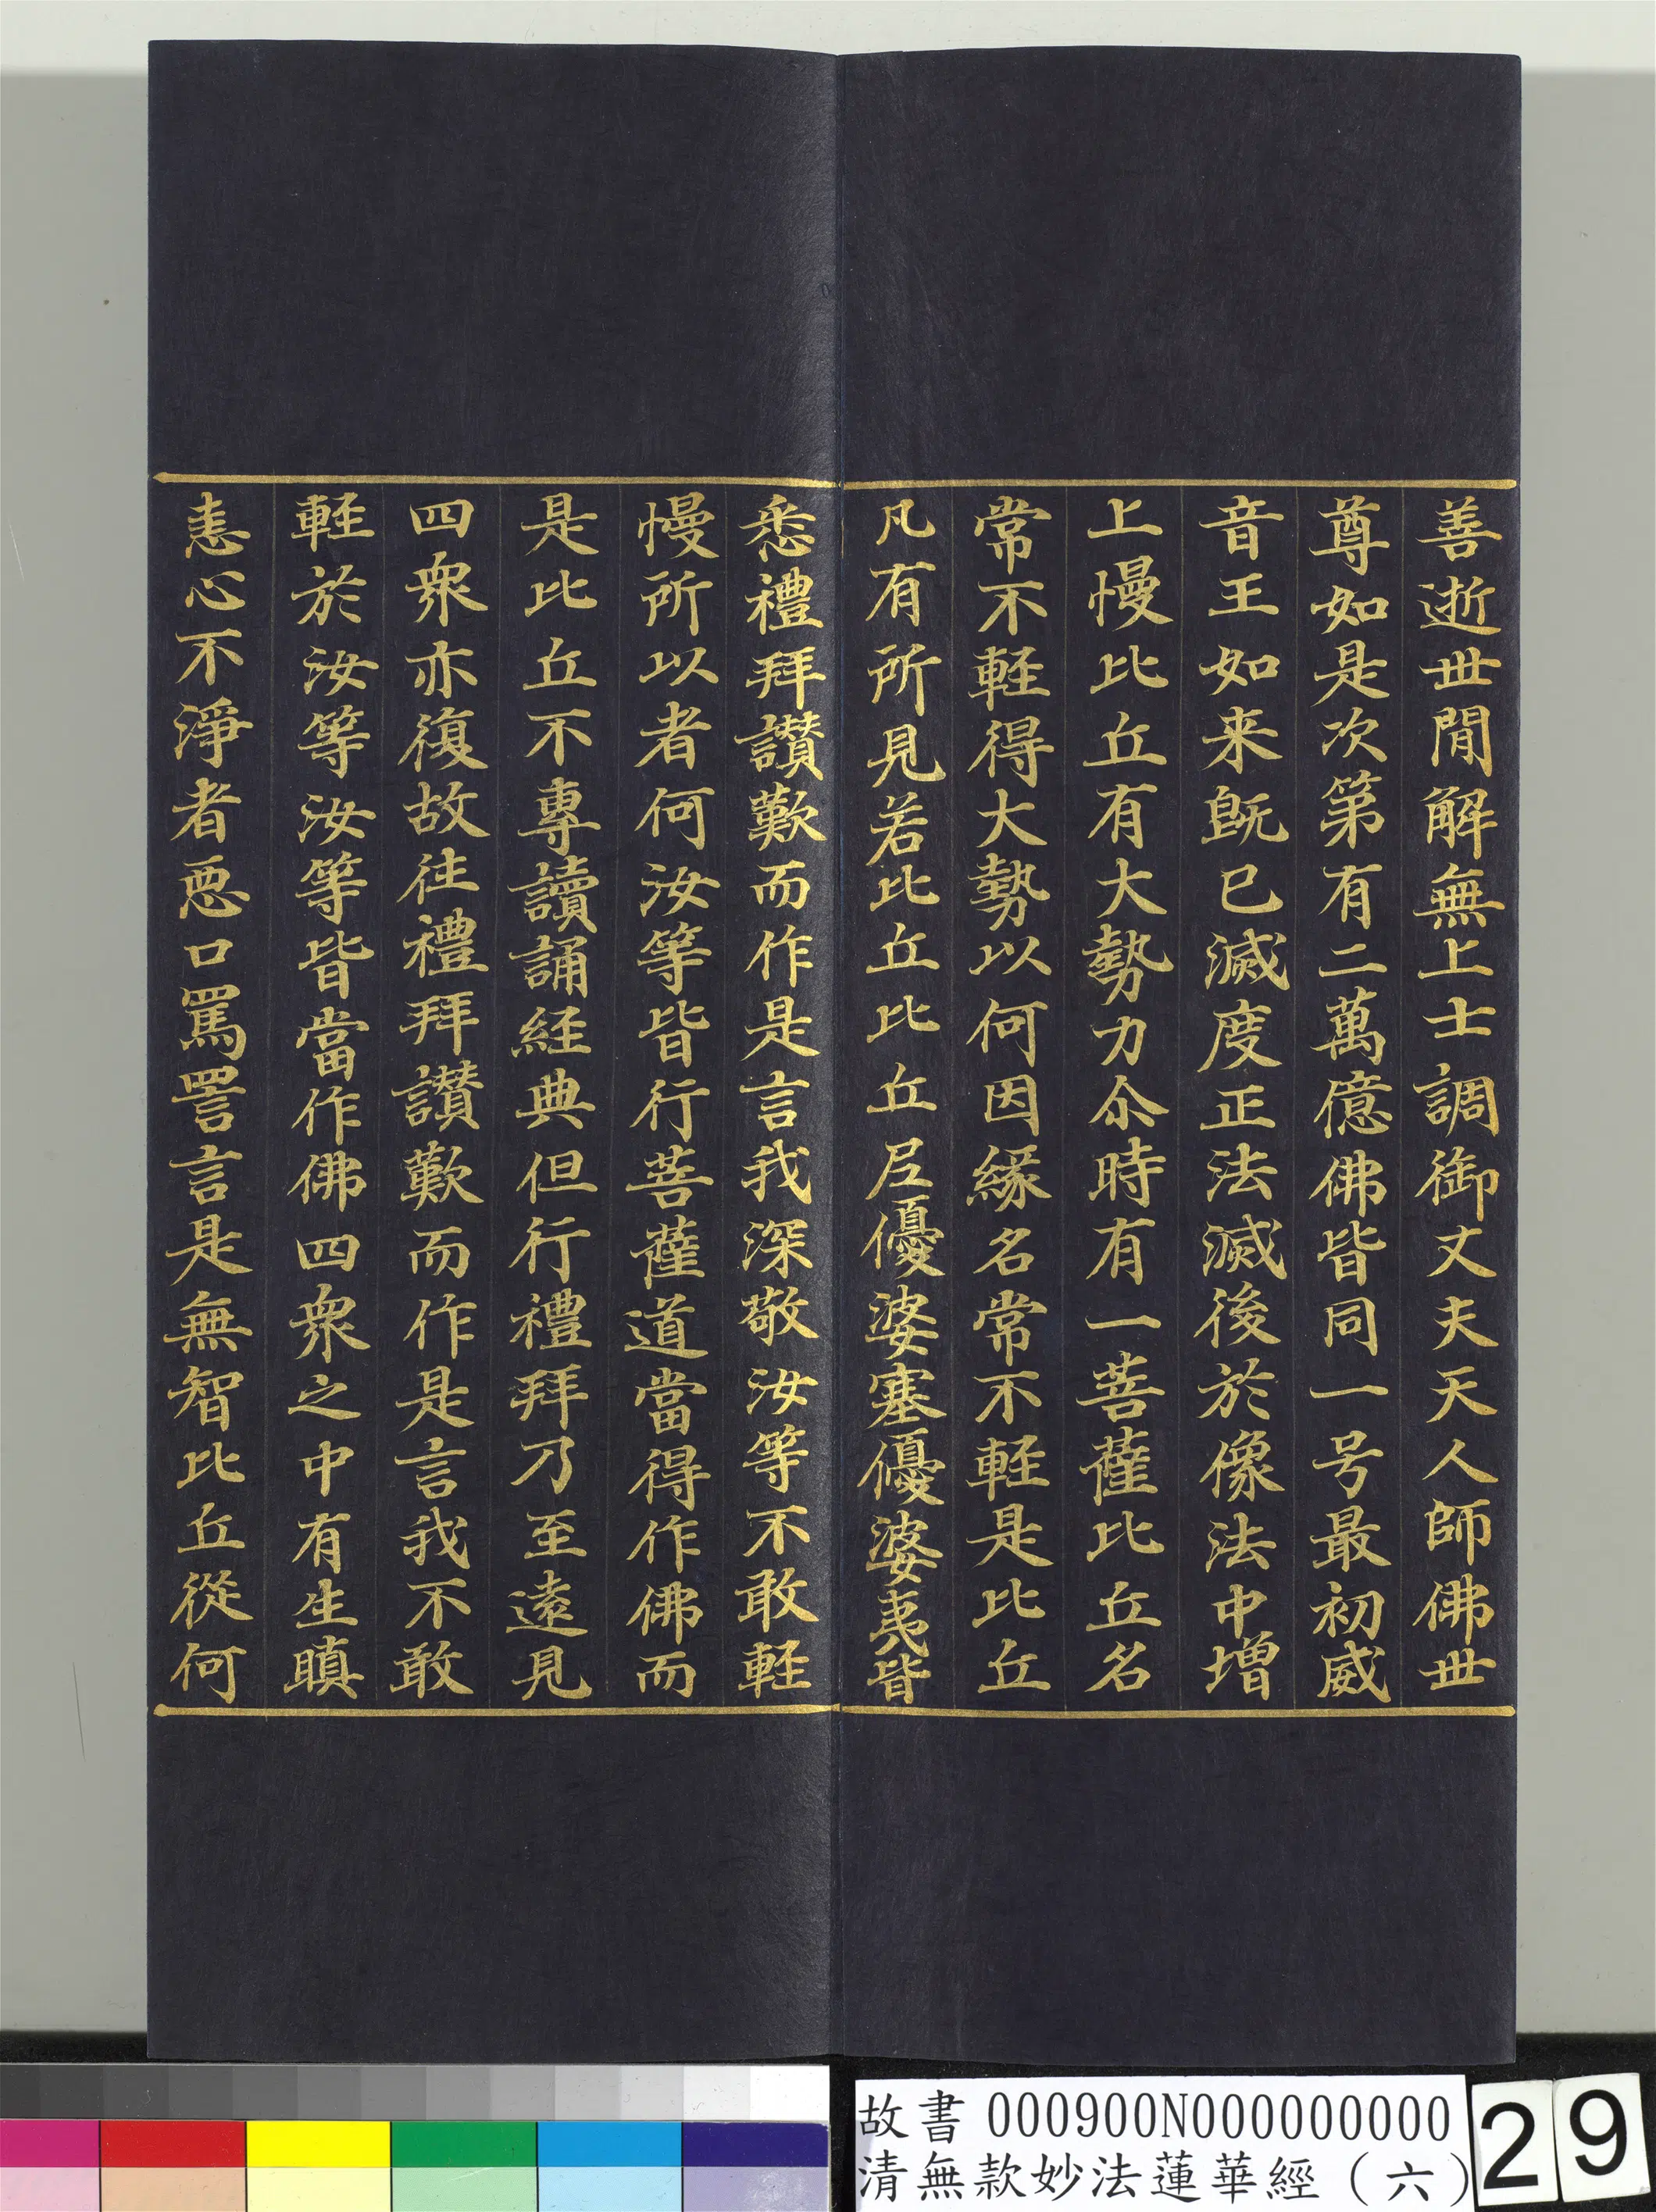 善逝世閒解無上士調御丈夫天人師佛世
尊如是次第有二萬億佛皆同一号最初威
音王如来既已滅度正法滅後於像法中增
上慢比丘有大勢力尒時有一菩薩比丘名
常不輕得大勢以何因緣名常不輕是比丘
凡有所見若比丘比丘尼優婆塞優婆夷皆
悉禮拜讚歎而作是言我深敬汝等不敢輕
慢所以者何汝等皆行菩薩道當得作佛而
是比丘不專讀誦經典但行禮拜乃至遠見
四衆亦復故往禮拜讚歎而作是言我不敢
輕於汝等汝等皆當作佛四衆之中有生瞋
恚心不淨者惡口罵詈言是無智比丘從何
故書 000900N000000000
清無款妙法蓮華經（六）
29